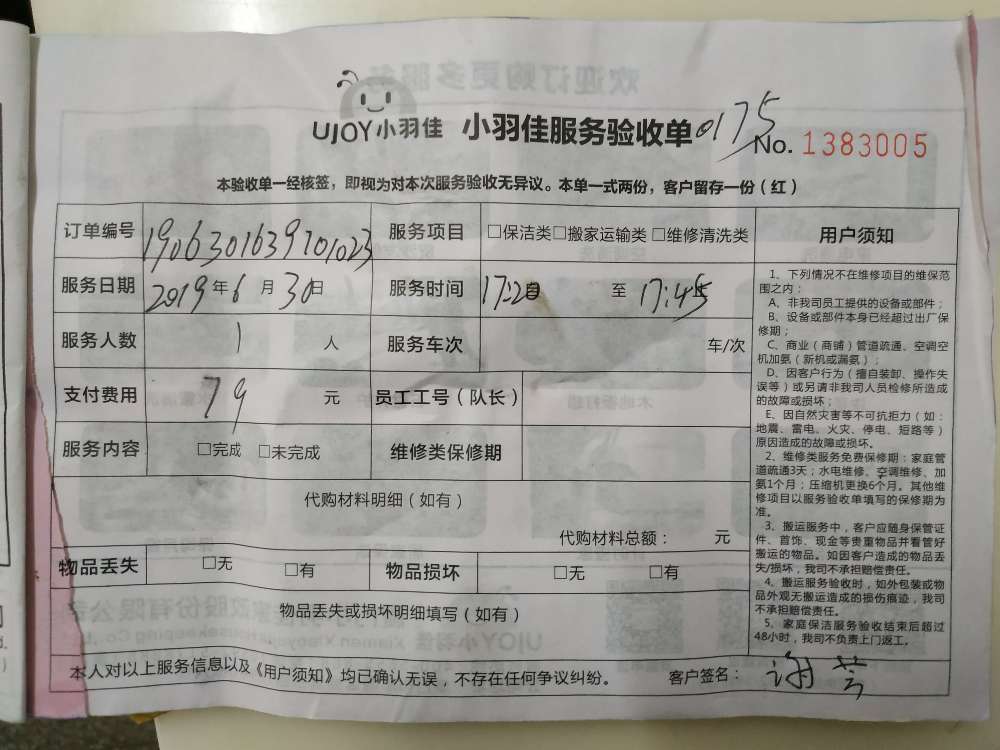 UJOY小羽佳 小羽佳服务验收单 0175
No. 1383005
本验收单一经核签，即视为对本次服务验收无异议。本单一式两份，客户留存一份（红）
订单编号 1906301639701023 服务项目 □保洁类□搬家运输类 □维修清洗类
服务日期 2019年 6 月 30日 服务时间 17:20 至 17:45
服务人数 1 人 服务车次 车/次
支付费用 79 元 员工工号（队长）
服务内容 □完成 □未完成 维修类保修期
代购材料明细（如有）
代购材料总额： 元
物品丢失 □无 □有 物品损坏 □无 □有
物品丢失或损坏明细填写（如有）
用户须知
1、下列情况不在维修项目的维保范
围之内：
A、非我司员工提供的设备或部件；
B、设备或部件本身已经超过出厂保
修期；
C、商业（商铺）管道疏通、空调空
机加氨（新机或漏氨）；
D、因客户行为（擅自装卸、操作失
误等）或另请非我司人员检修所造成
的故障或损坏；
E、因自然灾害等不可抗拒力（如：
地震、雷电、火灾、停电、短路等）
原因造成的故障或损坏。
2、维修类服务免费保修期：家庭管
道疏通3天；水电维修、空调维修、加
氨1个月；压缩机更换6个月。其他维
修项目以服务验收单填写的保修期为
准。
3、搬运服务中，客户应随身保管证
件、首饰、现金等贵重物品并看管好
搬运的物品。如因客户造成的物品丢
失/损坏，我司不承担赔偿责任。
4、搬运服务验收时，如外包装或物
品外观无搬运造成的损伤痕迹，我司
不承担赔偿责任。
5、家庭保洁服务验收结束后超过
48小时，我司不负责上门返工。
本人对以上服务信息以及《用户须知》均已确认无误，不存在任何争议纠纷。 客户签名： 谢芸